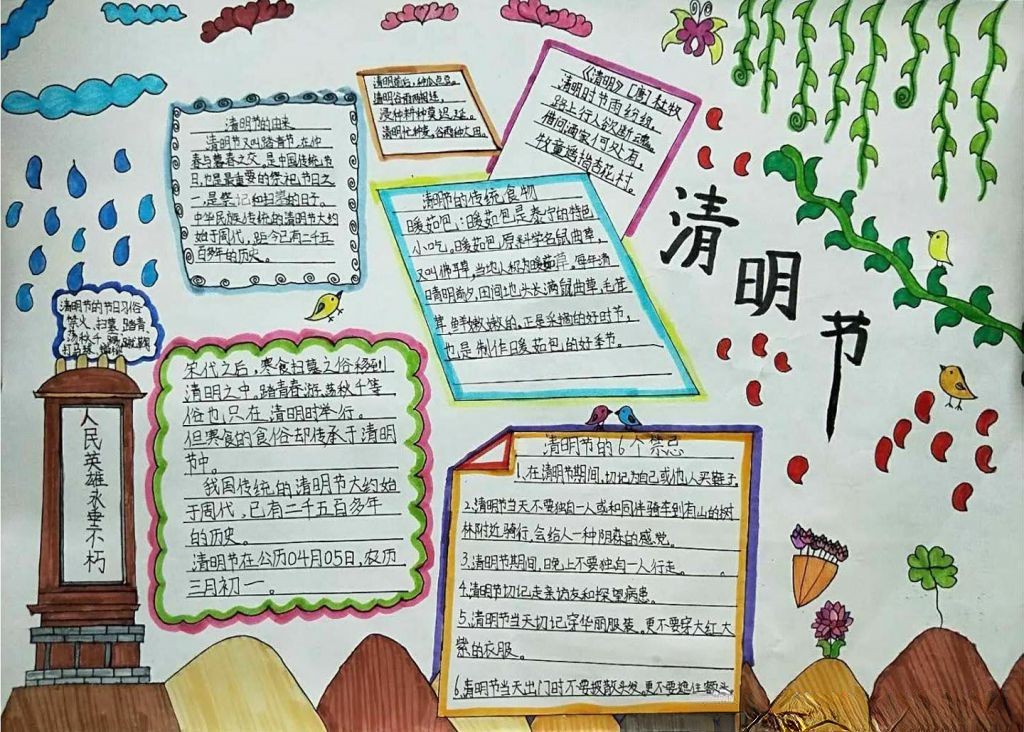 清明节
清明节的由来
清明节又叫踏青节,在仲
春与暮春之交,是中国传统节
日,也是最重要的祭祀节日之
一,是祭祀和扫墓的日子。
中华民族传统的清明节大约
始于周代,距今已有二千五
百多年的历史。
清明前后,种瓜点豆。
清明谷雨两相连,
浸种耕种莫迟延。
清明忙种麦,谷雨种大田。
《清明》【唐】杜牧
清明时节雨纷纷,
路上行人欲断魂。
借问酒家何处有,
牧童遥指杏花村。
清明节的传统食物
暖茹包:暖茹包是泰宁的特色
小吃,暖茹包原料学名鼠曲草,
又叫佛耳草,当地人称为暖茹草。每年清
明前夕,田间地头长满鼠曲草,毛茸
茸,鲜嫩嫩的,正是采摘的好时节,
也是制作暖茹包的好季节。
清明节的节日习俗
禁火、扫墓、踏青
荡秋千、踢蹴鞠
打马球、插柳
人民英雄永垂不朽
宋代之后,寒食扫墓之俗移到
清明之中。踏青春游、荡秋千等
俗也只在清明时举行。
但寒食的食俗却传承于清明
节中。
我国传统的清明节大约始
于周代,已有二千五百多年
的历史。
清明节在公历04月05日,农历
三月初一。
清明节的6个禁忌
1、在清明节期间,切记为自己或他人买鞋子
2、清明节当天不要独自一人或和同伴骑车到有山的树
林附近骑行,会给人一种阴森的感觉。
3、清明节期间,晚上不要独自一人行走。
4、清明节切记走亲访友和探望病患。
5、清明节当天切记穿华丽服装。更不要穿大红大
紫的衣服。
6、清明节当天出门时不要披散头发。更不要遮住额头。